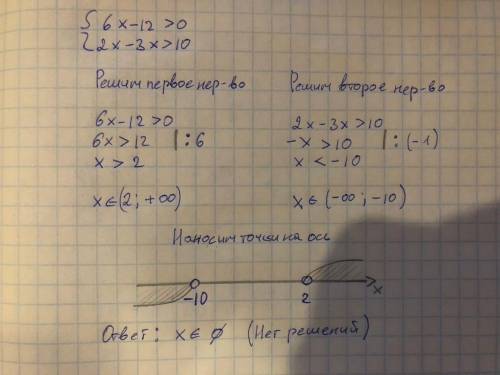 { 6x-12>0
{ 2x-3x>10
Решим первое нер-во
6x-12>0
6x>12 |:6
x>2
x∈(2; +∞)
Решим второе нер-во
2x-3x>10
-x>10 |:(-1)
x<-10
x∈(-∞; -10)
Наносим точки на ось
-10 2 x
Ответ: x∈∅ (Нет решений)